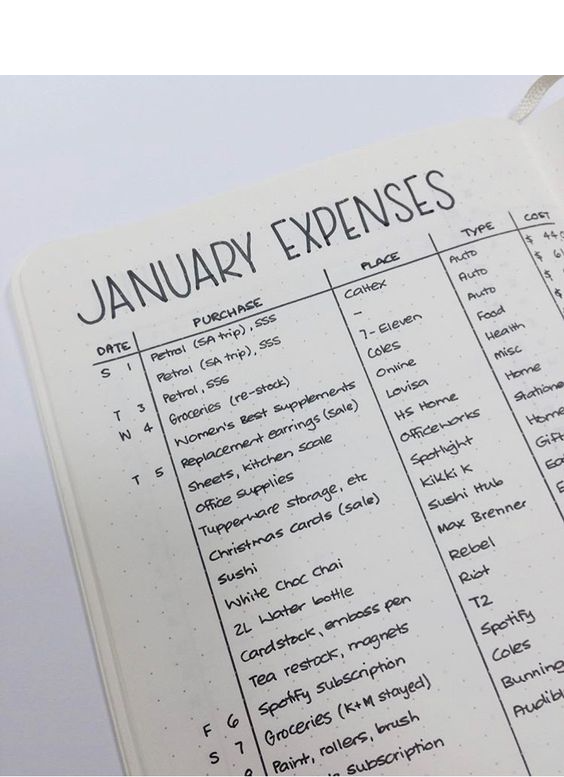 JANUARY EXPENSES
DATE PURCHASE PLACE TYPE COST
S 1 Petrol (SA trip), SSS Caltex Auto $ 44
Petrol (SA trip), SSS - Auto $ 6
T 3 Petrol, SSS 7-Eleven Auto $
W 4 Groceries (re-stock) Coles Food $
Women's Best supplements Online Health
T 5 Replacement earrings (sale) Lovisa Misc
Sheets, kitchen scale HS Home Home
Office supplies Officeworks Statione
Tupperware storage, etc Spotlight Home
Christmas cards (sale) Kikki K Gift
Sushi Sushi Hub
White choc chai Max Brenner
2L Water bottle Rebel
Cardstock, emboss pen Riot
Tea restock, magnets T2
F 6 Spotify subscription Spotify
S 7 Groceries (K+M stayed) Coles
Paint, rollers, brush Bunning
subscription Audibl